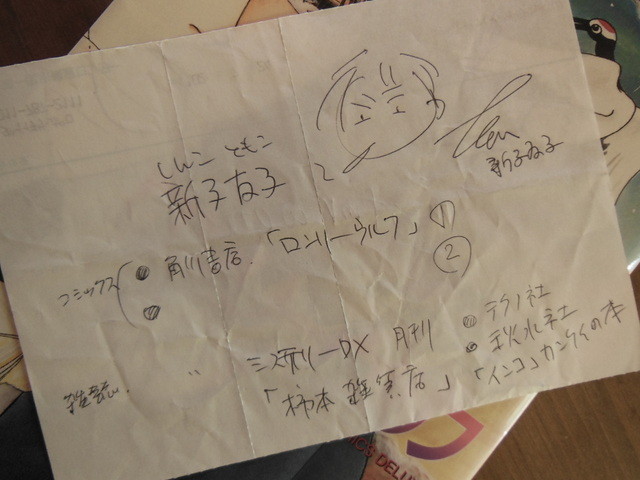 しんこ ともこ
新子友子
新子友子
コミックス
角川書店.「ロンリーウルフ」①
②
雑誌. 〃 ミステリーDX 月刊
「柿本雑貨店」
テクノ社
秋水社
「インコ」カンケイの本